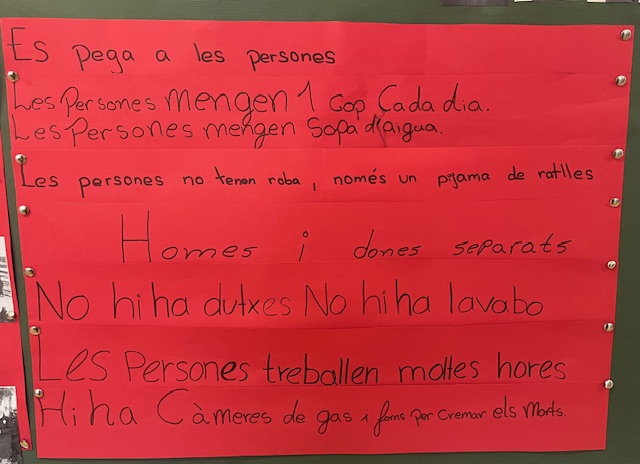 Es pega a les persones
Les Persones mengen 1 cop Cada dia.
Les Persones mengen Sopa d'aigua.
Les persones no tenen roba, només un pijama de ratlles
Homes i dones separats
No hi ha dutxes No hi ha lavabo
Les Persones treballen moltes hores
Hi ha Càmeres de gas i forns per cremar els Morts.